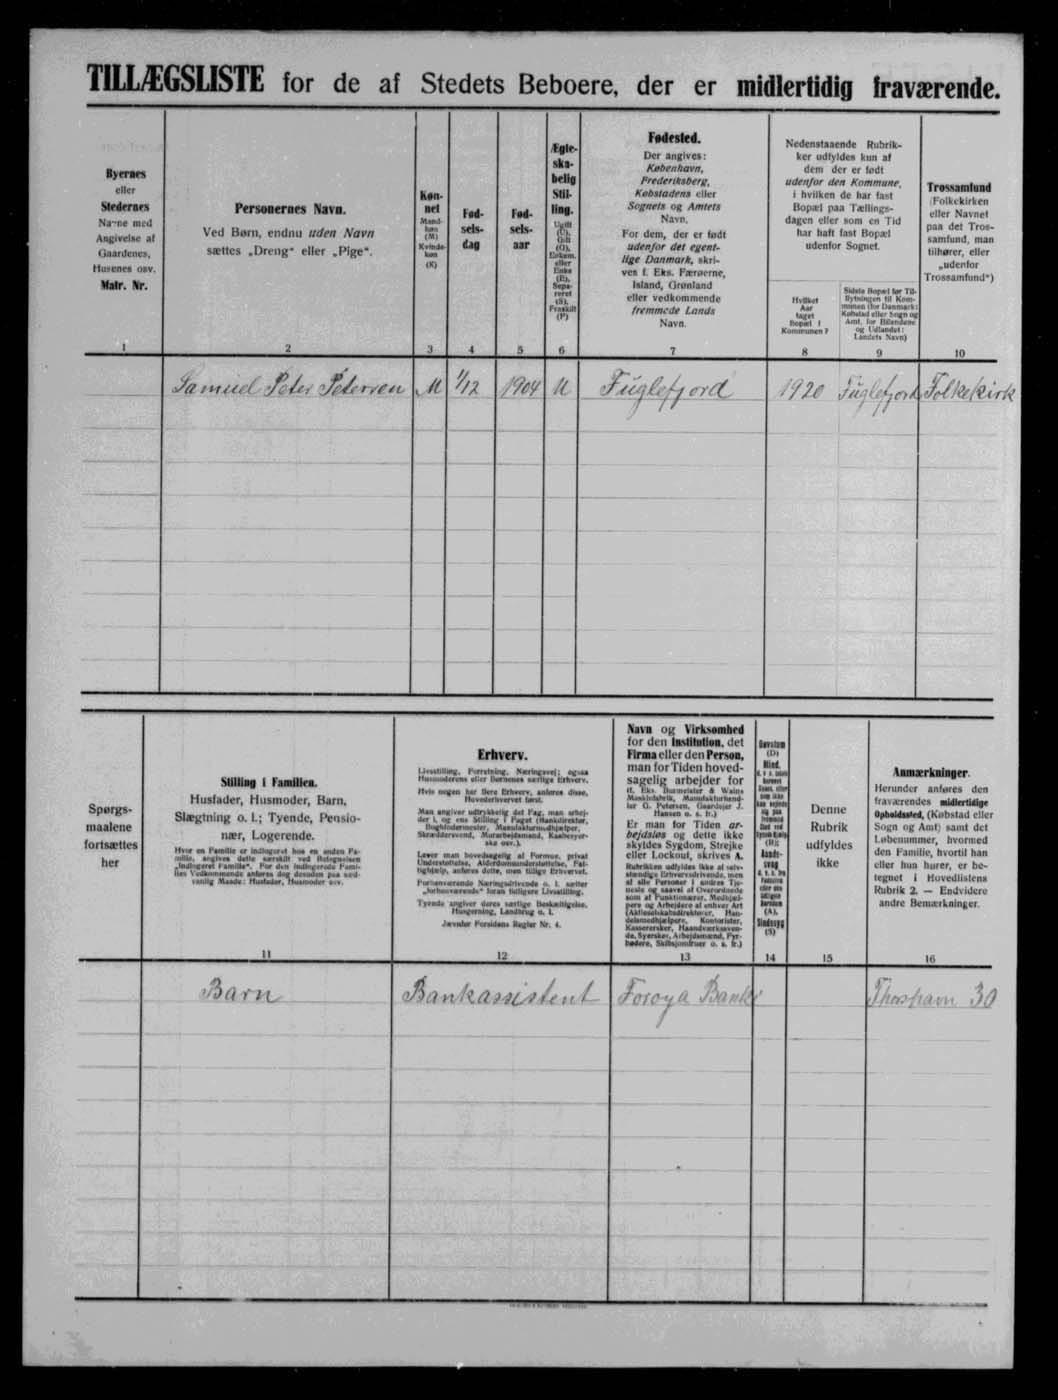 TILLÆGSLISTE for de af Stedets Beboere, der er midlertidig fraværende.
Byernes
eller
Stedernes
Navne med
Angivelse af
Gaardenes,
Husenes osv.
Matr. Nr.
Personernes Navn.
Ved Børn, endnu uden Navn
sættes „Dreng“ eller „Pige“.
Køn-
net
Mand-
køn
(M)
Kvinde-
køn
(K)
Fød-
sels-
dag
Fød-
sels-
aar
Ægte-
ska-
belig
Stil-
ling.
Ugift
(U),
Gift
(G),
Enkem.
eller
Enke
(E),
Sepa-
reret
(S),
Fraskilt
(F)
Fødested.
Der angives:
København,
Frederiksberg,
Købstadens eller
Sognets og Amtets
Navn.
For dem, der er født
udenfor det egent-
lige Danmark, skri-
ves f. Eks. Færøerne,
Island, Grønland
eller vedkommende
fremmede Lands
Navn.
Nedenstaaende Rubrik-
ker udfyldes kun af
dem der er født
udenfor den Kommune,
i hvilken de har fast
Bopæl paa Tællings-
dagen eller som en Tid
har haft fast Bopæl
udenfor Sognet.
Hvilket
Aar
taget
Bopæl i
Kommunen?
Sidste Bopæl før Til-
flytningen til Kom-
munen (for Danmark:
Købstad eller Sogn og
Amt, for Bilandene
og Udlandet:
Landets Navn)
Trossamfund
(Folkekirken
eller Navnet
paa det Tros-
samfund, man
tilhører, eller
„udenfor
Trossamfund“)
1 2 3 4 5 6 7 8 9 10
Samuel Peter Petersen M 1/12 1904 U Fuglefjord 1920 Fuglefjord Folkekirk
Spørgs-
maalene
fortsættes
her
Stilling i Familien.
Husfader, Husmoder, Barn,
Slægtning o. l.; Tyende, Pensio-
nær, Logerende.
Hvor en Familie er indlogeret hos en anden Fa-
milie, angives dette særskilt ved Betegnelsen
„Indlogeret Familie“. For den indlogerede Fami-
lies Vedkommende anføres dog desuden paa sed-
vanlig Maade: Husfader, Husmoder osv.
Erhverv.
Livsstilling, Forretning, Næringsvej; ogsaa
Husmoderens eller Børnenes særlige Erhverv.
Hvis nogen har flere Erhverv, anføres disse,
Hovederhvervet først.
Man angiver udtrykkelig det Fag, man arbej-
der i, og ens Stilling i Faget (Bankdirektør,
Bogbindermester, Manufakturmedhjælper,
Skræddersvend, Murarbejdsmand, Kasbeyer-
ske osv.).
Lever man hovedsagelig af Formue, privat
Understøttelse, Aldersdomsunderstøttelse, Fat-
tighjælp, anføres dette, men tillige Erhvervet.
Forhenværende Næringsdrivende o. l. sætter
„forhenværende“ foran tidligere Livsstilling.
Tyende angiver deres særlige Beskæftigelse,
Husgerning, Landbrug o. l.
Jævnfør Forsidens Regler Nr. 4.
Navn og Virksomhed
for den Institution, det
Firma eller den Person,
man for Tiden hoved-
sagelig arbejder for
(f. Eks. Burmeister & Wains
Maskinfabrik, Manufakturhand-
ler G. Petersen, Gaardejer J.
Hansen o. s. fr.)
Er man for Tiden ar-
bejdsløs og dette ikke
skyldes Sygdom, Strejke
eller Lockout, skrives A.
Rubrikken udfyldes ikke af selv-
stændige Erhvervsdrivende, men
af alle Personer i andres Tje-
neste og saavel af Overordnede
som af Funktionærer, Medhjæl-
pere og Arbejdere af enhver Art
(Aktieselskabsdirektører, Han-
delsmedhjælpere, Kontorister,
Kassererske, Haandværkssven-
de, Syersker, Arbejdsmænd, Fyr-
bødere, Skibsjomfruer o. s. fr.)
Døvstum
(D)
Blind,
(B);
Aands-
svag
(A),
Sindssyg
(S)
Denne
Rubrik
udfyldes
ikke
Anmærkninger.
Herunder anføres den
fraværendes midlertidige
Opholdssted, (Købstad eller
Sogn og Amt) samt det
Løbenummer, hvormed
den Familie, hvortil han
eller hun hører, er be-
tegnet i Hovedlistens
Rubrik 2. — Endvidere
andre Bemærkninger.
11 12 13 14 15 16
Barn Bankassistent Foroya Banki Thorshavn 30